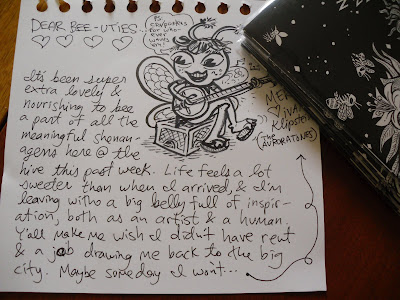 DEAR BEE-UTIES-
P.S.
COYPOSTERS
FOR WHO-
EVER
WANTS
EM!
It's been super
extra lovely &
nourishing to bee
a part of all the
meaningful shenan-
agens here @ the
hive this past week. Life feels a lot
sweeter than when I arrived, & I'm
leaving with a big belly full of inspir-
ation, both as an artist & a human.
Y'all make me wish I didn't have rent
& a job drawing me back to the big
city. Maybe someday I won't...
Klipster
(THE AURORATONES)